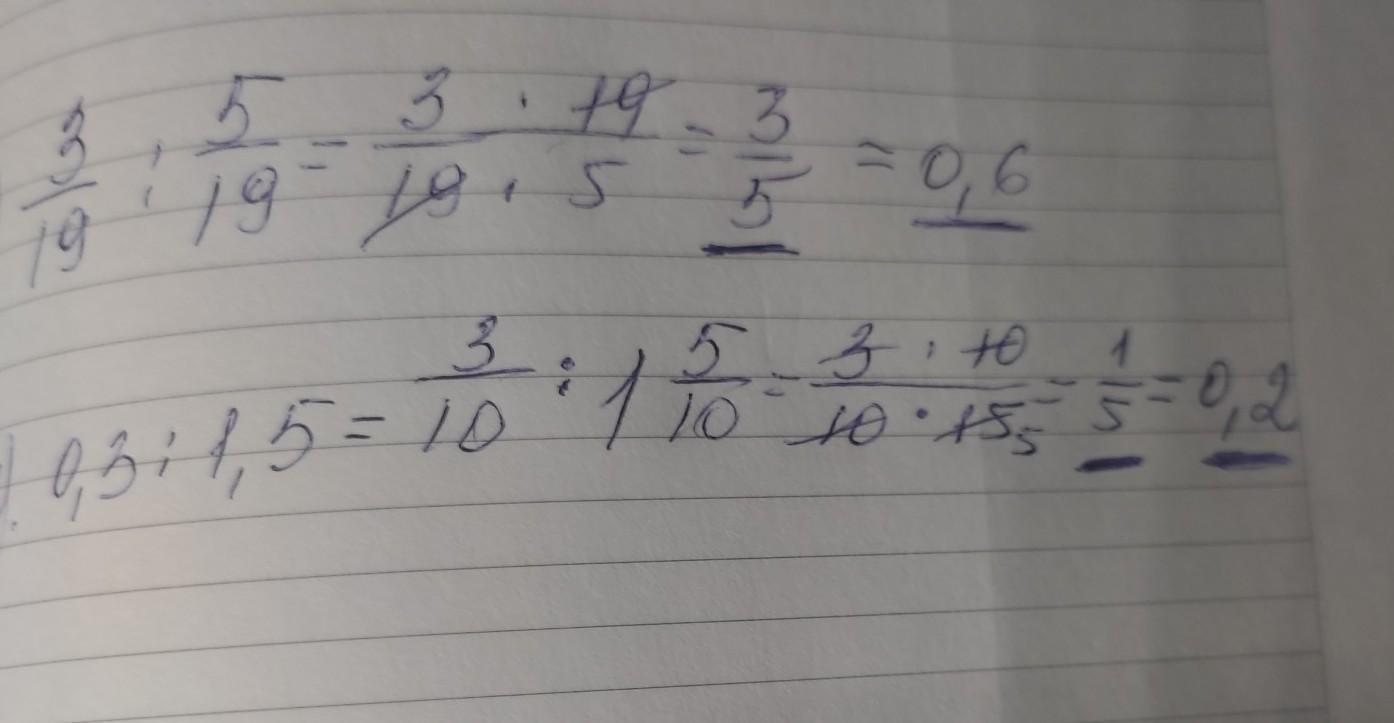 3/19 : 5/19 = 3 · 19 / 19 · 5 = 3/5 = 0,6
). 0,3 : 1,5 = 3/10 : 1 5/10 = 3 · 10 / 10 · 15 5 = 1/5 = 0,2